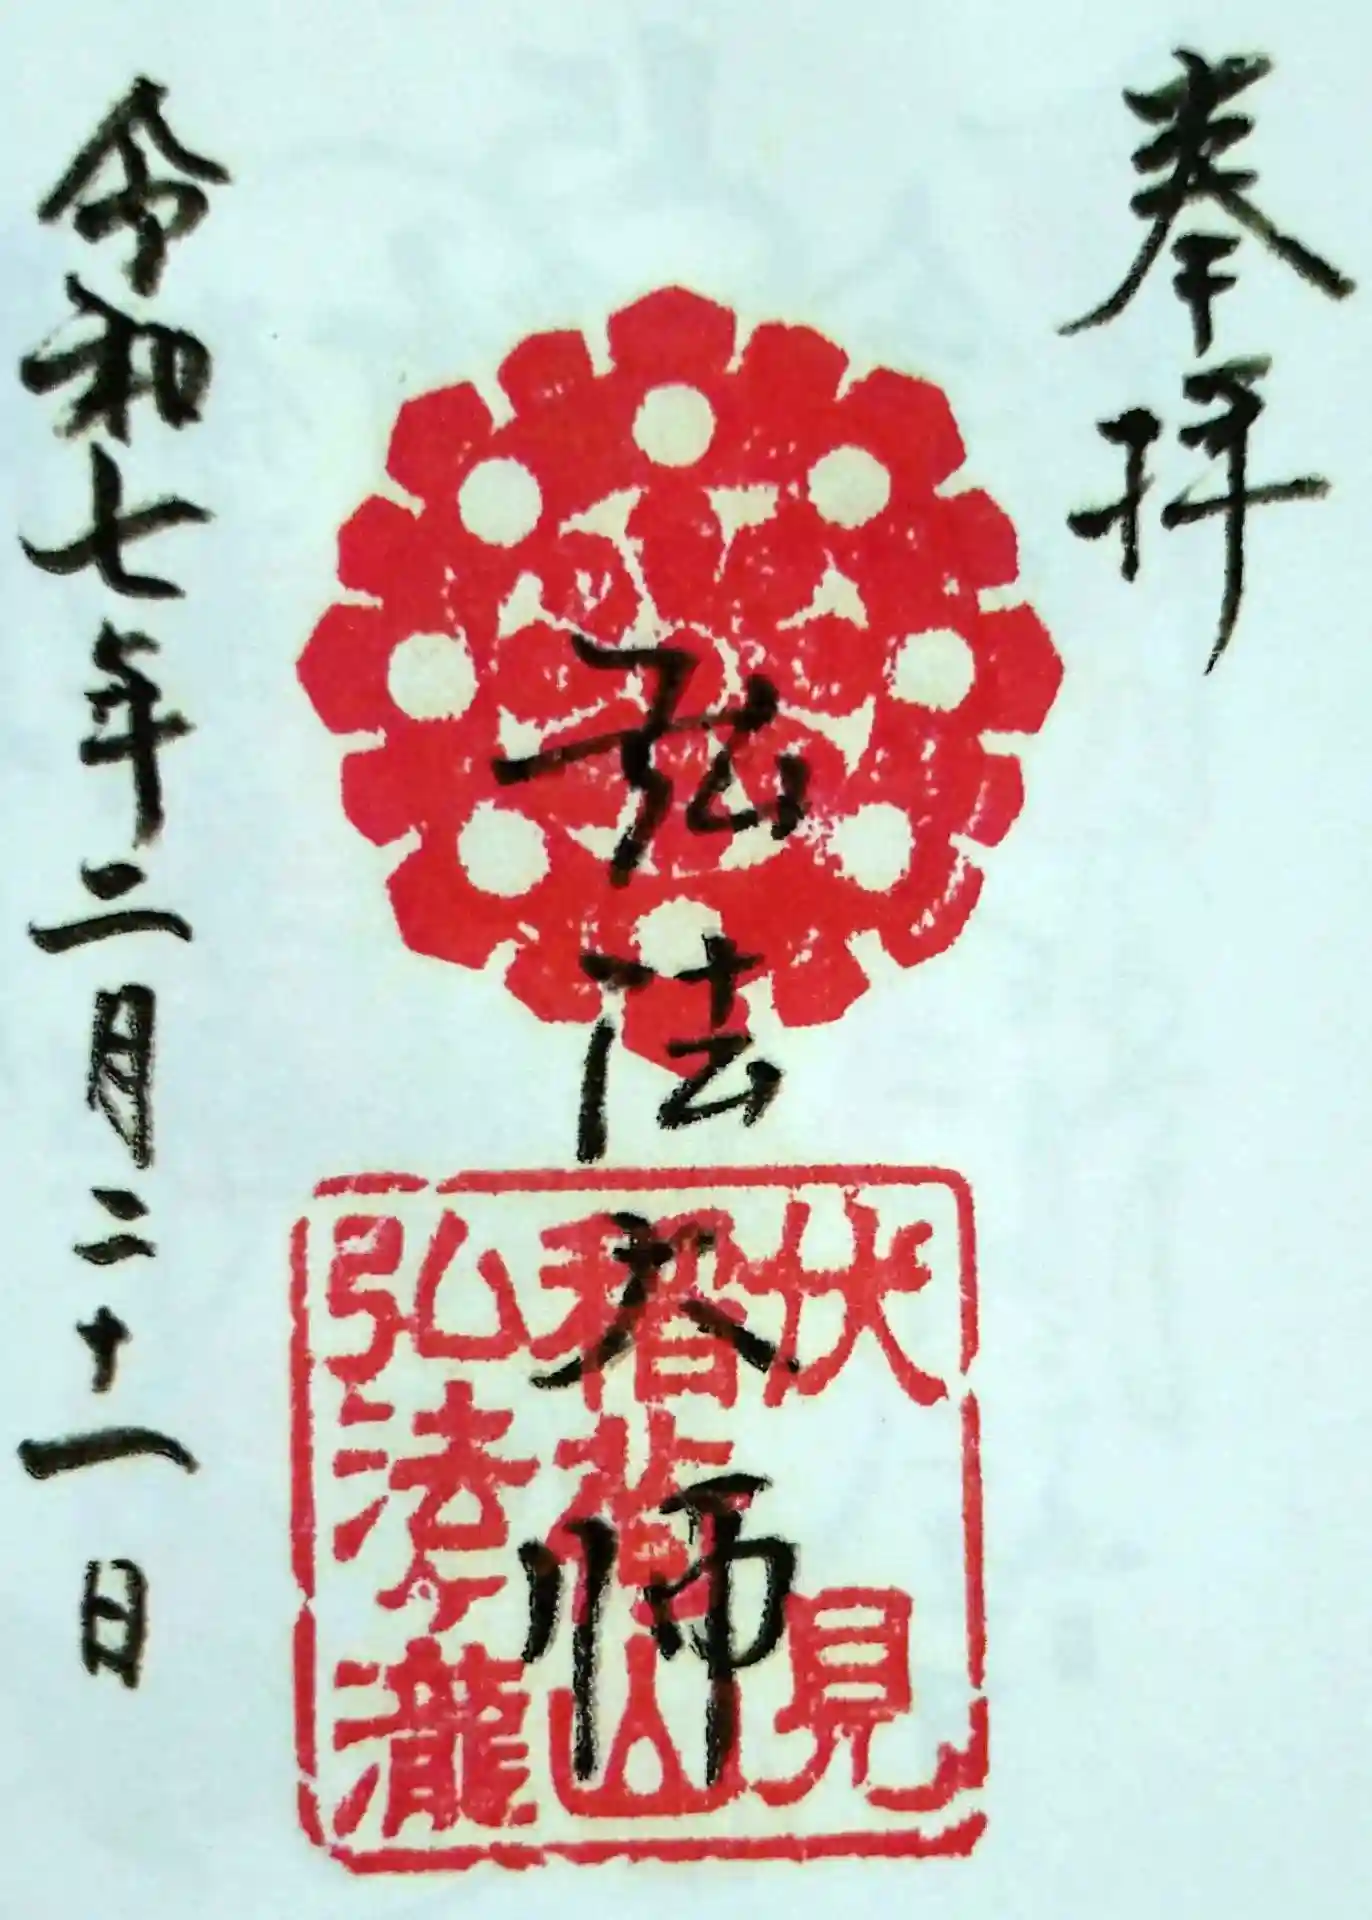 奉拝
弘法大師
伏見
稲荷山
弘法ヶ瀧
令和七年二月二十一日